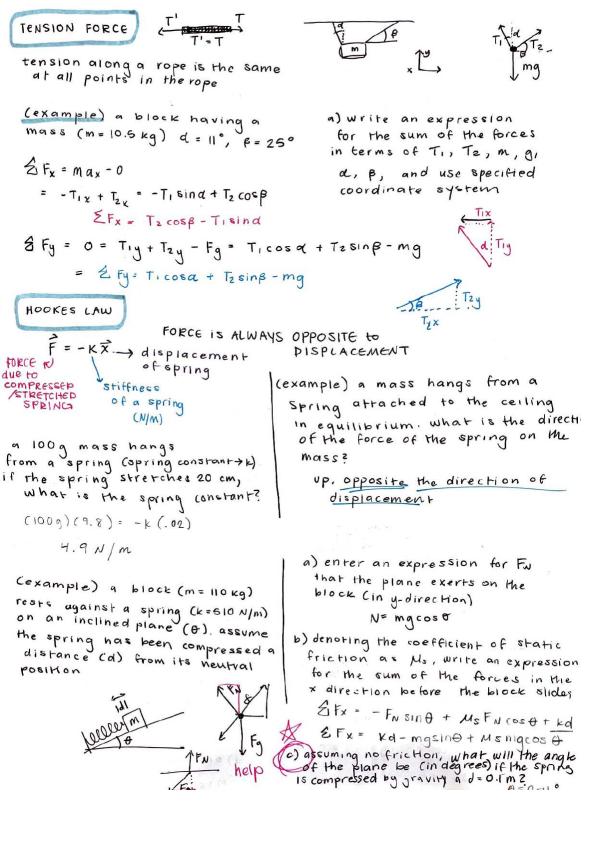 TENSION FORCE
T' T
T' = T
α
β
m
y
x
T₁ α T₂
mg
tension along a rope is the same
at all points in the rope
(example) a block having a
mass (m = 10.5 kg) α = 11°, β = 25°
a) write an expression
for the sum of the forces
in terms of T₁, T₂, m, g,
α, β, and use specified
coordinate system
ΣFx = max = 0
= -T₁x + T₂x = -T₁sinα + T₂cosβ
ΣFx = T₂cosβ - T₁sinα
ΣFy = 0 = T₁y + T₂y - Fg = T₁cosα + T₂sinβ - mg
= ΣFy = T₁cosα + T₂sinβ - mg
T₁x
α T₁y
θ T₂y
T₂x
HOOKES LAW
FORCE IS ALWAYS OPPOSITE to
DISPLACEMENT
F = -Kx → displacement
of spring
FORCE
due to
COMPRESSED
/STRETCHED
SPRING
stiffness
of a spring
(N/m)
(example) a mass hangs from a
spring attached to the ceiling
in equilibrium. what is the direct
of the force of the spring on the
mass?
up, opposite the direction of
displacement
a 100g mass hangs
from a spring (spring constant → k)
if the spring stretches 20 cm,
what is the spring constant?
(100g)(9.8) = -k(.02)
4.9 N/m
(example) a block (m = 110kg)
rests against a spring (k = 610 N/m)
on an inclined plane (θ). assume
the spring has been compressed a
distance (d) from its neutral
position
a) enter an expression for FN
that the plane exerts on the
block (in y-direction)
N = mgcosθ
b) denoting the coefficient of static
friction as μs, write an expression
for the sum of the forces in the
x direction before the block slides
ΣFx = -FN sinθ + μs FN cosθ + kd
ΣFx = kd - mgsinθ + μsmgcosθ
c) assuming no friction, what will the angle
of the plane be (in degrees) if the spring
is compressed by gravity a d = 0.1m?
|d|
m
θ
FN
Fg
FN
help